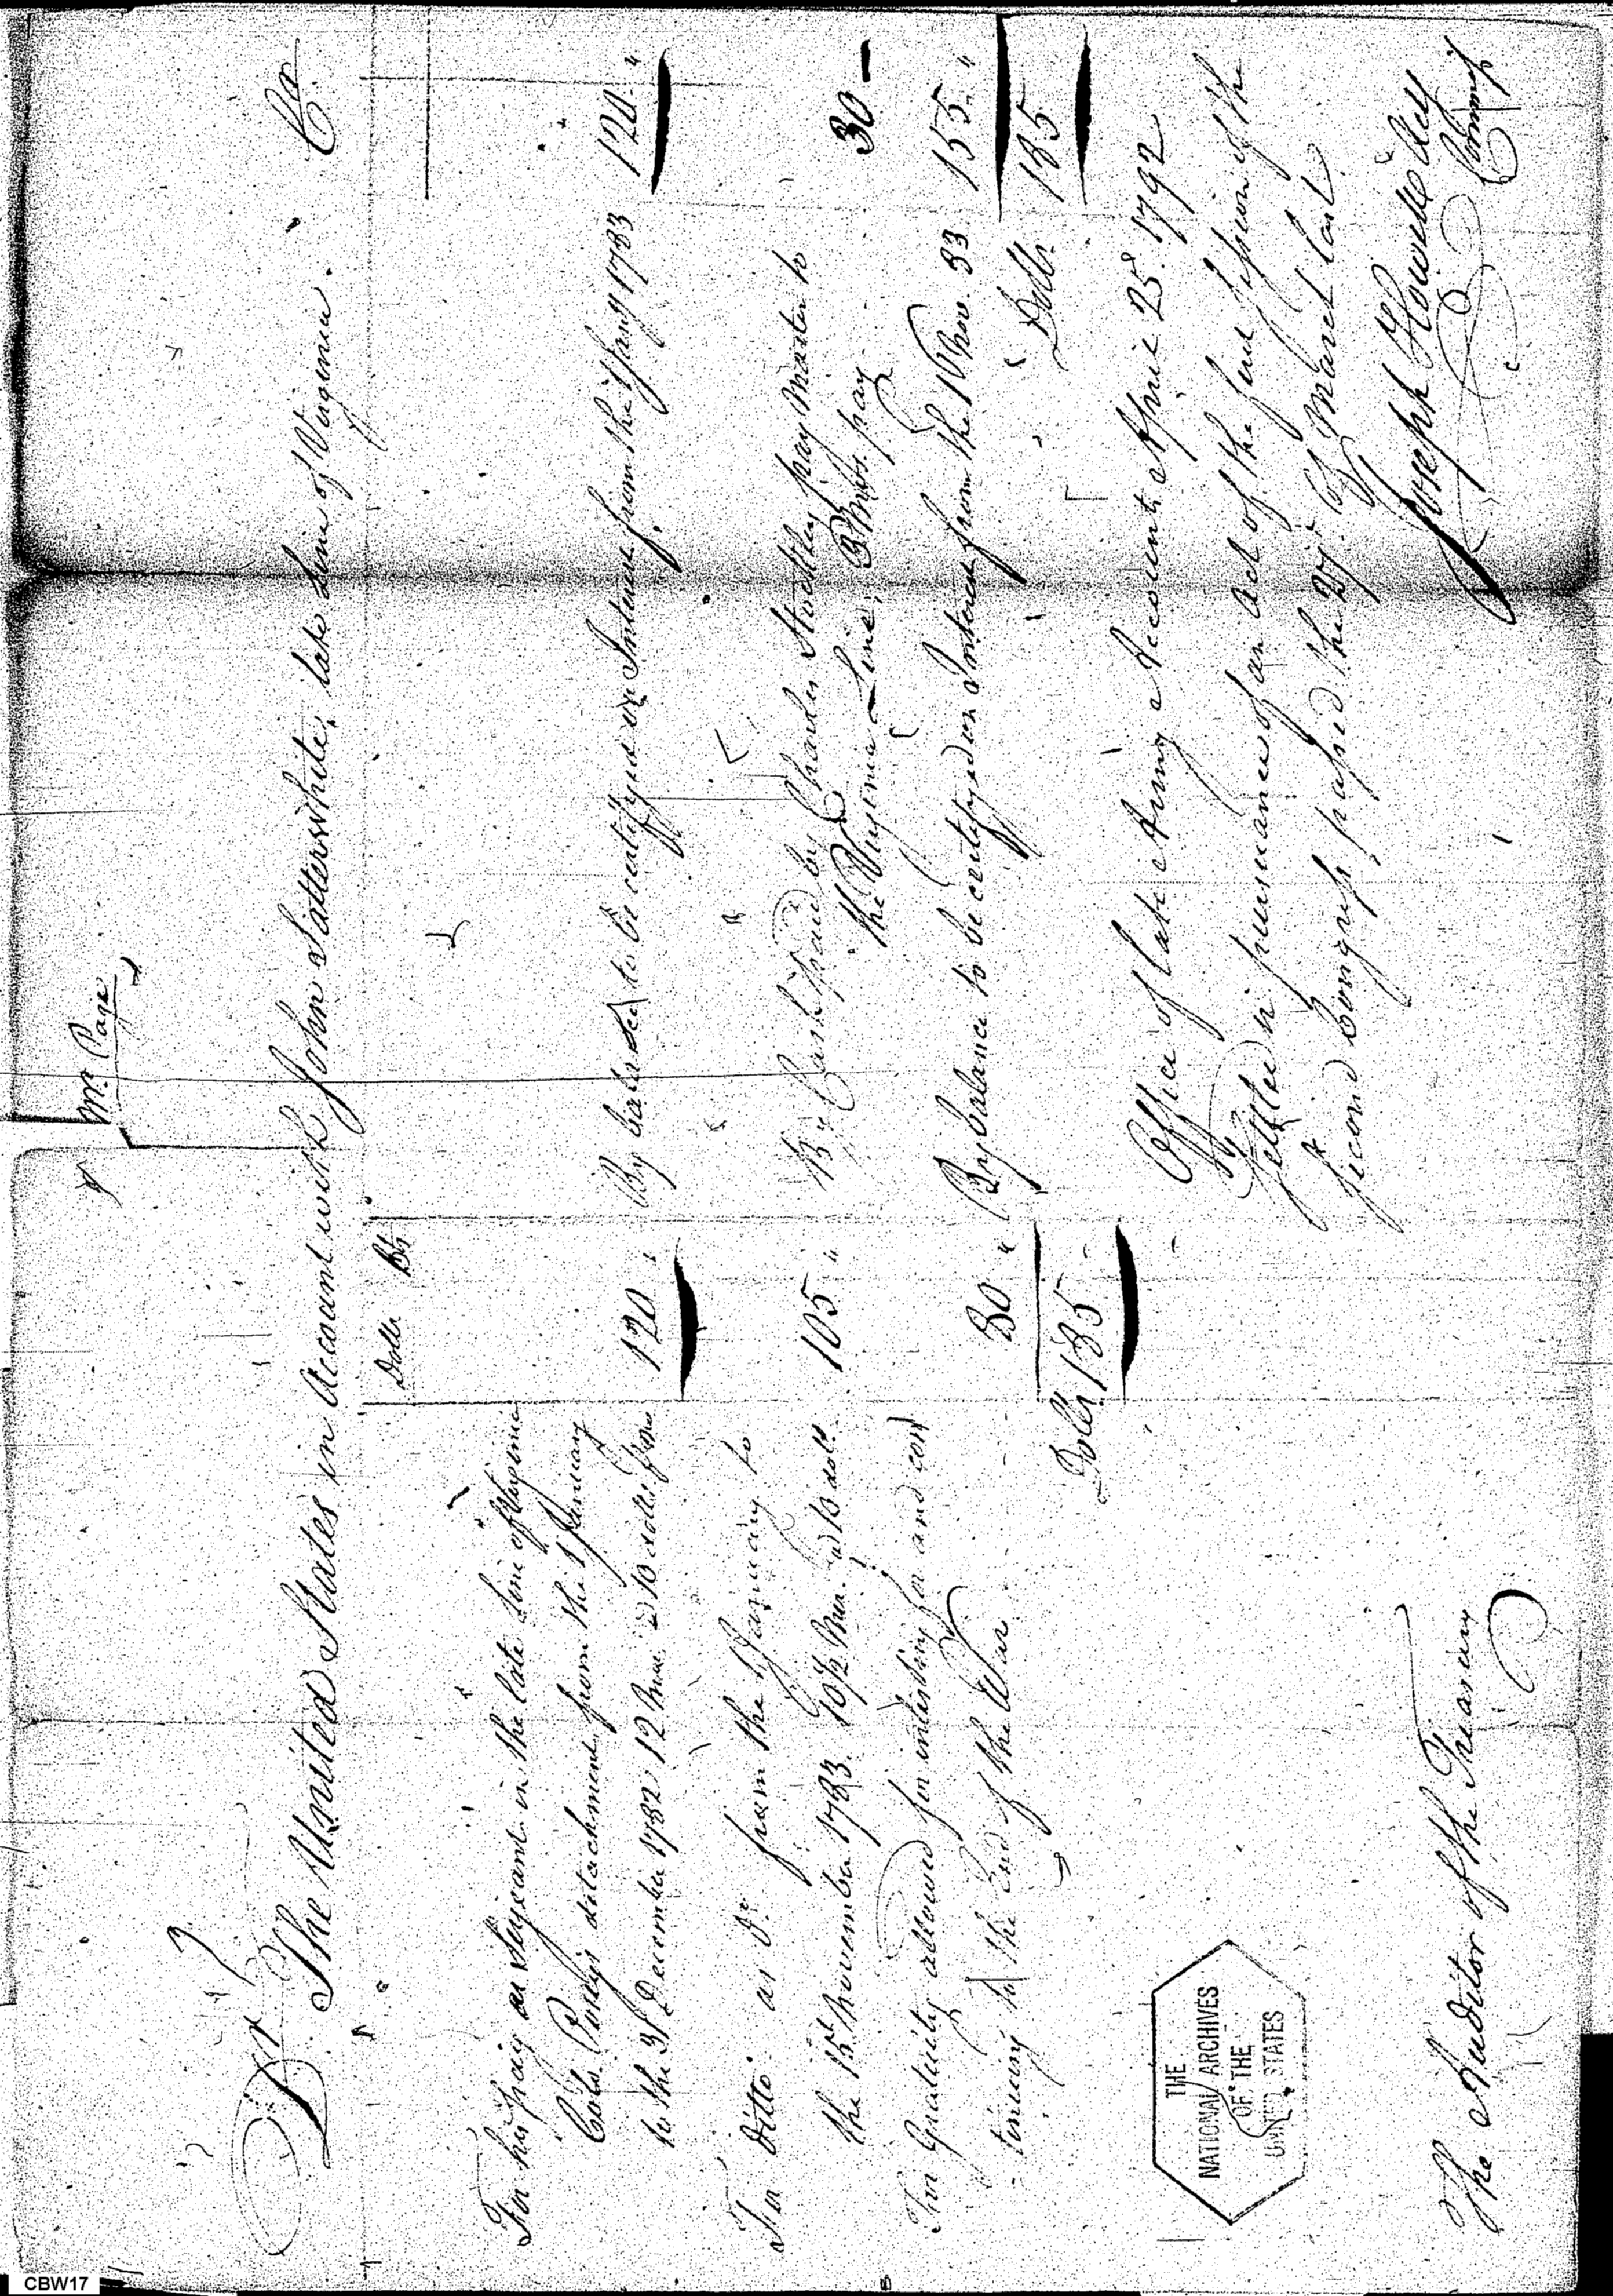 Mr. Page
Dr. The United States in Account with John Satterwhite, late Line of Virginia. Cr.
Dolls.
For his pay as Serjeant in the late Line of Virginia
Cols. Poseys detachment from the 1 January
to the 31 December 1782, 12 Mos. @ 10 dolls. pr. 120 "
By balance to be certifyed on Interest from the 1 Jany 1783 120 "
For Ditto as Do. from the 1 January to
the 15th November 1783. 10½ Mos. @ 10 dolls. 105 "
By Cash paid by Charles Stockley pay Master to
the Virginia Line, 3 Mos. pay 30 —
For Gratuity allowed for inlisting for and con
tinuing to the End of the War 80 "
By balance to be certifyed on Interest from the 16 Nov. 83 155 "
Dolls. 185 —
Dolls. 185
Office of late Army Accounts April 25th. 1792
Settled in pursuance of an Act of the first Session of the
second Congress passed the 27th. of March last.
Joseph Howell
Commr.
THE
NATIONAL ARCHIVES
OF THE
UNITED STATES
The Auditor of the Treasury
CBW17